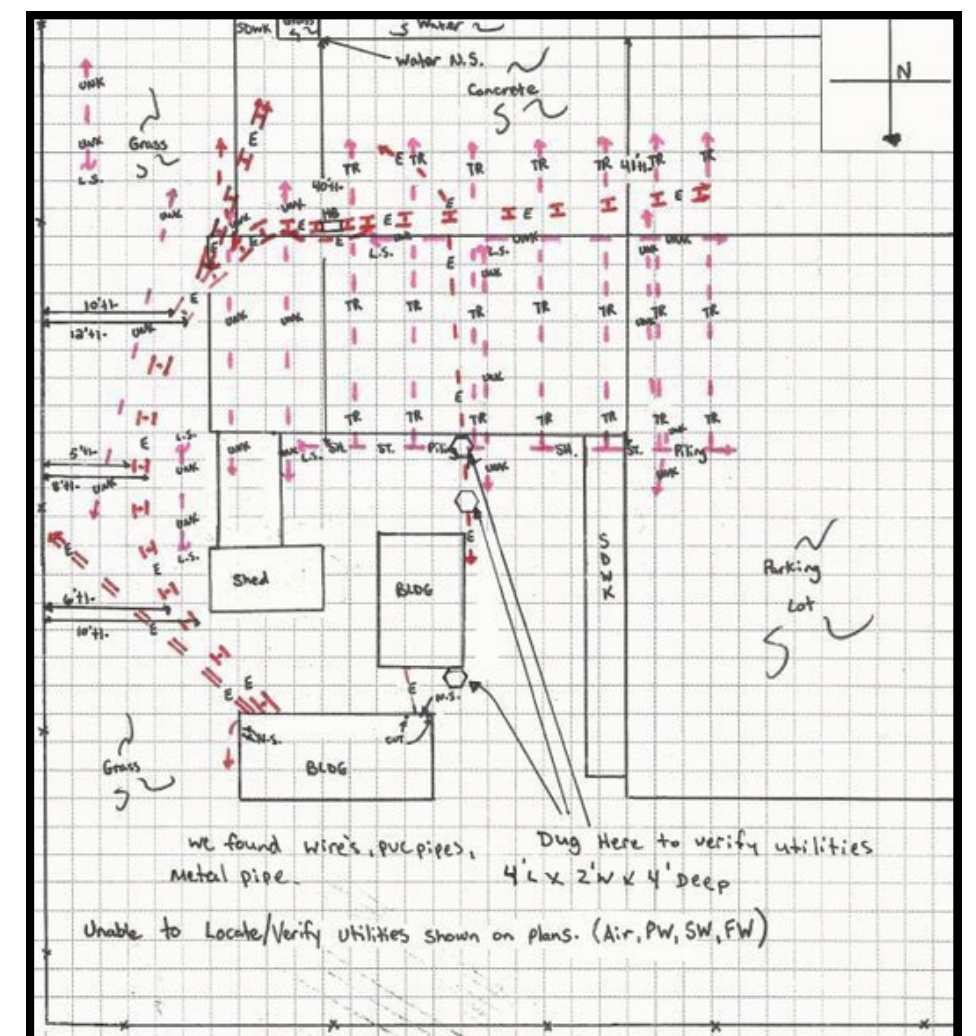 SDWK
Grass
Water
Water N.S.
Concrete
N
UNK
UNK
L.S.
Grass
UNK
E
E
E
TR
TR
TR
TR
TR
41'+/-
TR
TR
40'+/-
UNK
UNK
HB
E
E
E
E
E
E
E
E
L.S.
UNK
L.S.
UNK
UNK
UNK
UNK
E
10'+/-
12'+/-
UNK
UNK
UNK
TR
TR
TR
TR
TR
UNK
TR
TR
UNK
E
TR
TR
TR
TR
TR
TR
TR
E
L.S.
UNK
UNK
L.S.
SH.
ST.
Piling
SH.
ST.
Piling
UNK
5'+/-
8'+/-
UNK
UNK
UNK
UNK
UNK
L.S.
E
E
E
Shed
BLDG
SDWK
Parking
Lot
6'+/-
10'+/-
E
E
E
E
N.S.
N.S.
OUT
BLDG
Grass
we found wire's, PVC pipes,
Metal pipe.
Dug Here to verify utilities
4'L x 2'W x 4' Deep
Unable to Locate/Verify Utilities shown on plans. (Air, PW, SW, FW)